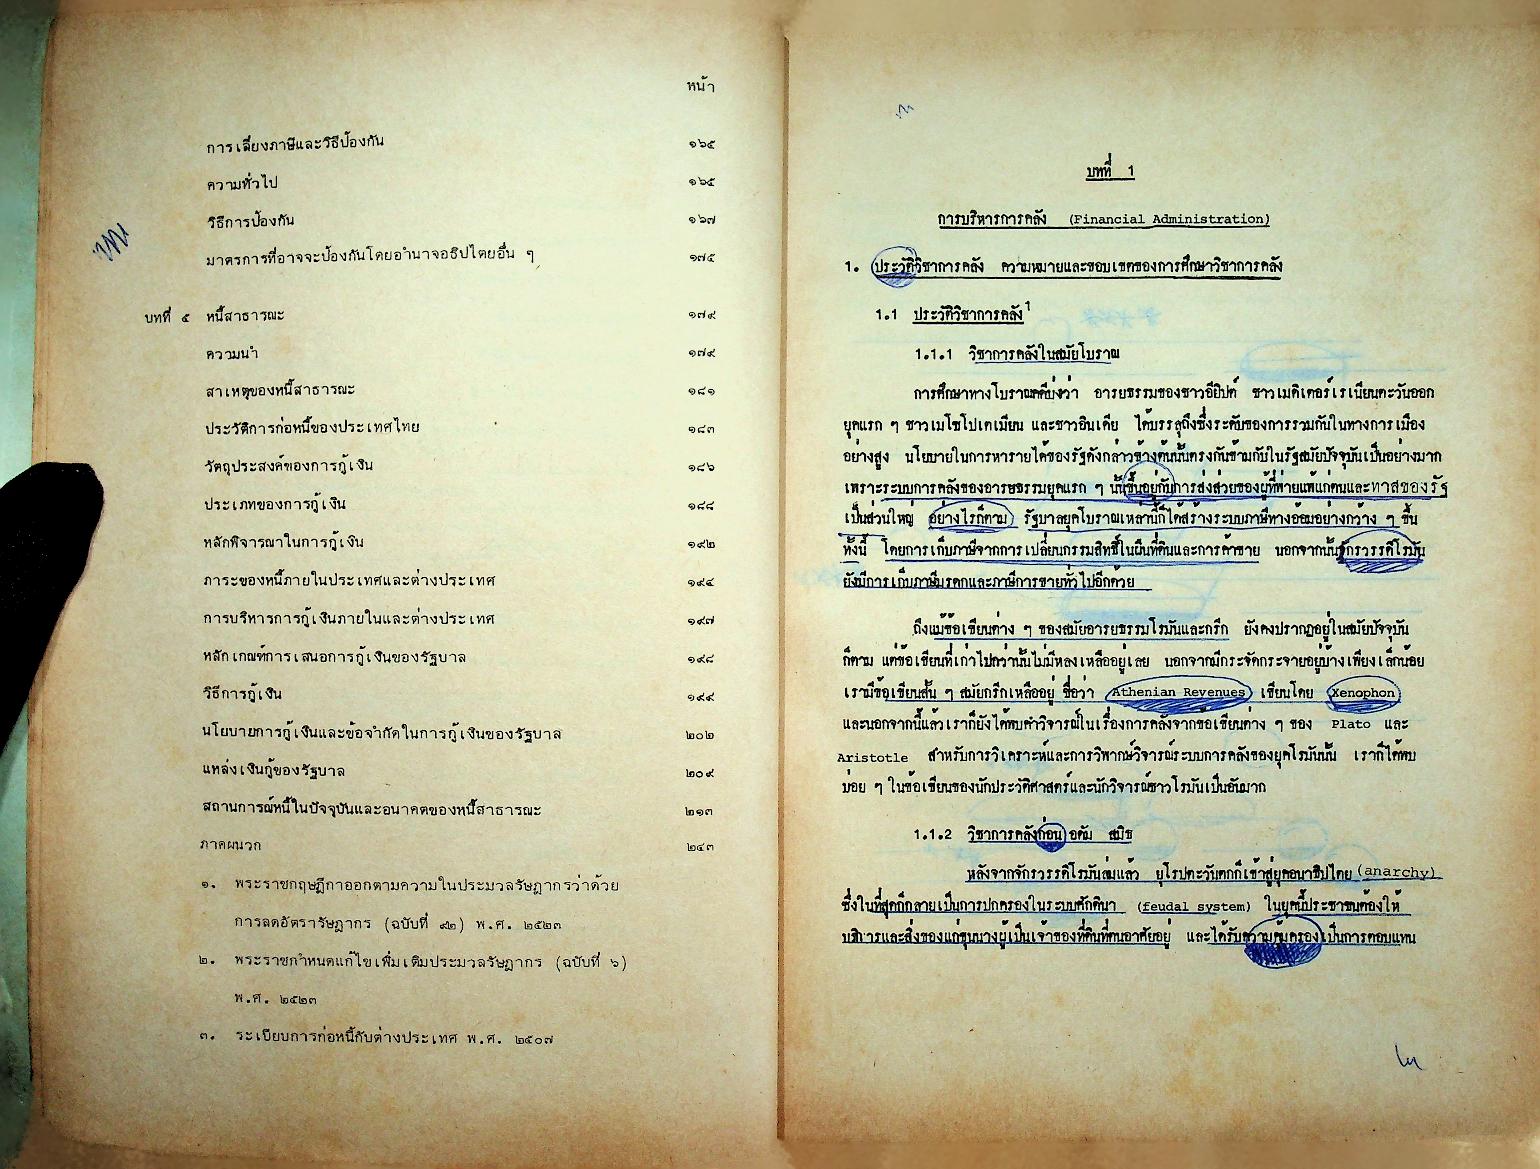 หน้า
การเลี่ยงภาษีและวิธีป้องกัน ๑๖๕
ความทั่วไป ๑๖๕
วิธีการป้องกัน ๑๖๗
มาตรการที่อาจจะป้องกันโดยอำนาจอธิปไตยอื่น ๆ ๑๗๕
บทที่ ๕ หนี้สาธารณะ ๑๗๙
ความนำ ๑๗๙
สาเหตุของหนี้สาธารณะ ๑๘๑
ประวัติการก่อหนี้ของประเทศไทย ๑๘๓
วัตถุประสงค์ของการกู้เงิน ๑๘๖
ประเภทของการกู้เงิน ๑๘๘
หลักพิจารณาในการกู้เงิน ๑๙๒
ภาระของหนี้ภายในประเทศและต่างประเทศ ๑๙๔
การบริหารการกู้เงินภายในและต่างประเทศ ๑๙๗
หลักเกณฑ์การเสนอการกู้เงินของรัฐบาล ๑๙๘
วิธีการกู้เงิน ๑๙๙
นโยบายการกู้เงินและข้อจำกัดในการกู้เงินของรัฐบาล ๒๐๒
แหล่งเงินกู้ของรัฐบาล ๒๐๙
สถานการณ์หนี้ในปัจจุบันและอนาคตของหนี้สาธารณะ ๒๑๓
ภาคผนวก ๒๔๓
๑. พระราชกฤษฎีกาออกตามความในประมวลรัษฎากรว่าด้วย
การลดอัตรารัษฎากร (ฉบับที่ ๙๒) พ.ศ. ๒๕๒๓
๒. พระราชกำหนดแก้ไขเพิ่มเติมประมวลรัษฎากร (ฉบับที่ ๖)
พ.ศ. ๒๕๒๓
๓. ระเบียบการก่อหนี้กับต่างประเทศ พ.ศ. ๒๕๐๗
บทที่ 1
การบริหารการคลัง (Financial Administration)
1. ประวัติวิชาการคลัง ความหมายและขอบเขตของการศึกษาวิชาการคลัง
1.1 ประวัติวิชาการคลัง1
1.1.1 วิชาการคลังในสมัยโบราณ
การศึกษาทางโบราณคดีบ่งว่า อารยธรรมของชาวอียิปต์ ชาวเมดิเตอร์เรเนียนตะวันออก
ยุคแรก ๆ ชาวเมโซโปเตเมียน และชาวอินเดีย ได้บรรลุถึงซึ่งระดับของการรวมกันในทางการเมือง
อย่างสูง นโยบายในการหารายได้ของรัฐดังกล่าวข้างต้นนั้นตรงกันข้ามกับในรัฐสมัยปัจจุบันเป็นอย่างมาก
เพราะระบบการคลังของอารยธรรมยุคแรก ๆ นั้นขึ้นอยู่กับการส่งส่วยของผู้ที่พ่ายแพ้แก่ตนและทาสของรัฐ
เป็นส่วนใหญ่ อย่างไรก็ตาม รัฐบาลยุคโบราณเหล่านี้ก็ได้สร้างระบบภาษีทางอ้อมอย่างกว้าง ๆ ขึ้น
ทั้งนี้ โดยการเก็บภาษีจากการเปลี่ยนกรรมสิทธิ์ในผืนที่ดินและการค้าขาย นอกจากนั้นจักรวรรดิโรมัน
ยังมีการเก็บภาษีมรดกและภาษีการขายทั่วไปอีกด้วย
ถึงแม้ข้อเขียนต่าง ๆ ของสมัยอารยธรรมโรมันและกรีก ยังคงปรากฏอยู่ในสมัยปัจจุบัน
ก็ตาม แต่ข้อเขียนที่เก่าไปกว่านั้นไม่มีหลงเหลืออยู่เลย นอกจากมีกระจัดกระจายอยู่บ้างเพียงเล็กน้อย
เรามีข้อเขียนสั้น ๆ สมัยกรีกเหลืออยู่ ชื่อว่า Athenian Revenues เขียนโดย Xenophon
และนอกจากนี้แล้ว เราก็ยังได้พบคำวิจารณ์ในเรื่องการคลังจากข้อเขียนต่าง ๆ ของ Plato และ
Aristotle สำหรับการวิเคราะห์และการวิพากษ์วิจารณ์ระบบการคลังของยุคโรมันนั้น เราก็ได้พบ
บ่อย ๆ ในข้อเขียนของนักประวัติศาสตร์และนักวิจารณ์ชาวโรมันเป็นอันมาก
1.1.2 วิชาการคลังก่อน อดัม สมิธ
หลังจากจักรวรรดิโรมันล่มแล้ว ยุโรปตะวันตกก็เข้าสู่ยุคอนาธิปไตย (anarchy)
ซึ่งในที่สุดก็กลายเป็นการปกครองในระบบศักดินา (feudal system) ในยุคนี้ประชาชนต้องให้
บริการและสิ่งของแก่ขุนนางผู้เป็นเจ้าของที่ดินที่ตนอาศัยอยู่ และได้รับความคุ้มครองเป็นการตอบแทน